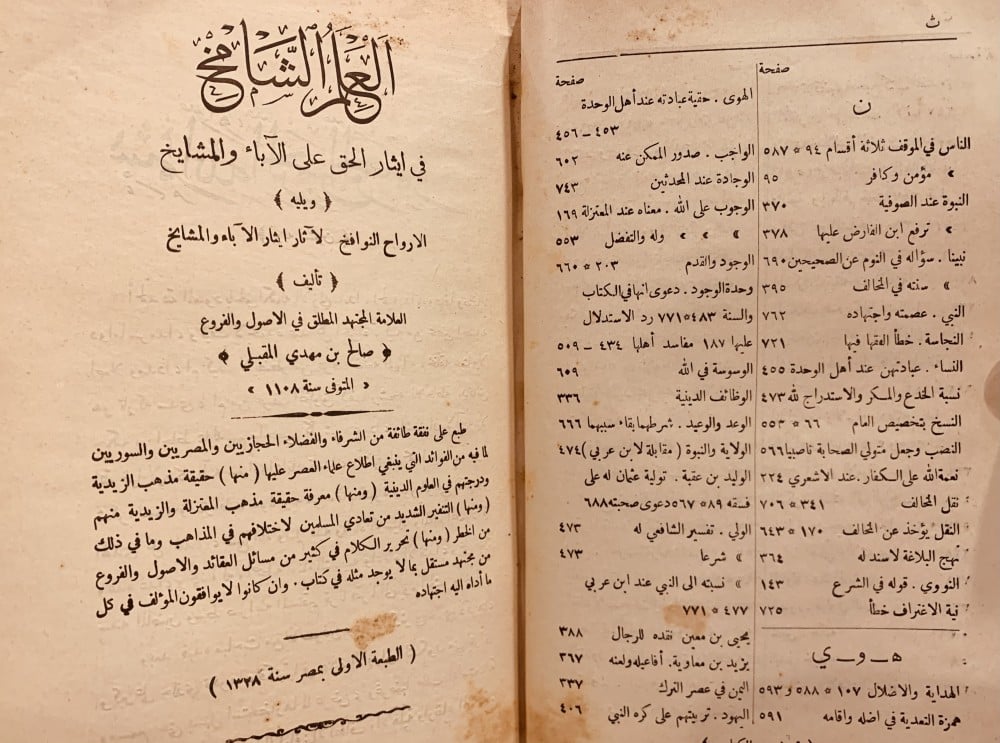 العلم الشامخ
في ايثار الحق على الآباء والمشايخ
﴿ ويليه ﴾
الارواح النوافخ لآثار ايثار الآباء والمشايخ
﴿ تأليف ﴾
العلامة المجتهد المطلق في الاصول والفروع
﴿ صالح بن مهدي المقبلي ﴾
« المتوفى سنة ١١٠٨ »
طبع على نفقة طائفة من الشرفاء والفضلاء الحجازيين والمصريين والسوريين
لما فيه من الفوائد التي ينبغي اطلاع علماء العصر عليها ( منها ) حقيقة مذهب الزيدية
ودرجتهم في العلوم الدينية ( ومنها ) معرفة حقيقة مذهب المعتزلة والزيدية منهم
( ومنها ) التنفير الشديد من تعادي المسلمين لاختلافهم في المذاهب وما في ذلك
من الخطر ( ومنها ) تحرير الكلام في كثير من مسائل العقائد والاصول والفروع
من مجتهد مستقل بما لا يوجد مثله في كتاب . وان كانوا لا يوافقون المؤلف في كل
ما أداه اليه اجتهاده
( الطبعة الاولى بمصر سنة ١٣٢٨ )
ث
صفحة
ن
الناس في الموقف ثلاثة أقسام ٩٤ * ٥٨٧
» مؤمن وكافر ٩٥
النبوة عند الصوفية ٣٧٠
» ترفع ابن الفارض عليها ٣٧٨
نبينا . سؤاله في النوم عن الصحيحين ٦٩٠
» سنته في المخالف ٣٩٥
النبي . عصمته واجتهاده ٧٦٢
النجاسة . خطأ الفقها فيها ٧٢١
النساء . عبادتهن عند أهل الوحدة ٤٥٥
نسبة الخدع والمكر والاستدراج لله ٤٧٣
النسخ بتخصيص العام ٦٦ * ٥٥٣
النصب وجعل متولي الصحابة ناصبيا ٥٦٦
نعمة الله على الكفار . عند الاشعري ٢٢٤
نقل المخالف ٣٤١ * ٧٠٦
النقل يؤخذ عن المخالف ١٧٠ * ٦٤٣
نهج البلاغة لا سند له ٣٦٤
النووي . قوله في الشرع ١٤٣
نية الاغتراف خطأ ٧٢٥
هـ ـ و ـ ي
الهداية والاضلال ١٠٧ * ٥٨٨ و ٥٩٣
همزة التعدية في اضله واقامه ٥٩١
صفحة
الهوى . حقية عبادته عند أهل الوحدة
٤٥٣ ـ ٤٥٦
الواجب . صدور الممكن عنه ٦٠٢
الوجادة عند المحدثين ٧٤٣
الوجوب على الله . معناه عند المعتزلة ١٦٩
» » » وله والتفضل ٥٥٣
الوجود والقدم ٢٠٣ * ٦٦٠
وحدة الوجود . دعوى انها في الكتاب
والسنة ٤٨٣ * ٧٧١ رد الاستدلال
عليها ١٨٧ مفاسد أهلها ٤٣٤ ـ ٥٠٩
الوسوسة في الله ٦٠٩
الوظائف الدينية ٣٣٦
الوعد والوعيد . شرطهما بقاء سببهما ٦٦٦
الولاية والنبوة ( مقابلة لابن عربي ) ٤٧٤
الوليد بن عقبة . تولية عثمان له على
فسقه ٨٩ * ٥٦٧ دعوى صحبته ٦٨٨
الولي . تفسير الشافعي له ٤٧٣
» شرعا ٤٧٣
» نسبته الى النبي عند ابن عربي
٤٧٧ * ٧٧١
يحيى بن معين نقده للرجال ٣٨٨
يزيد بن معاوية . أفاعيله ولعنه ٣٦٧
اليمن في عصر الترك ٣٣٧
اليهود . تربيتهم على كره النبي ٤٠٦